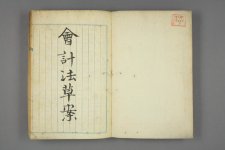 會計法草案